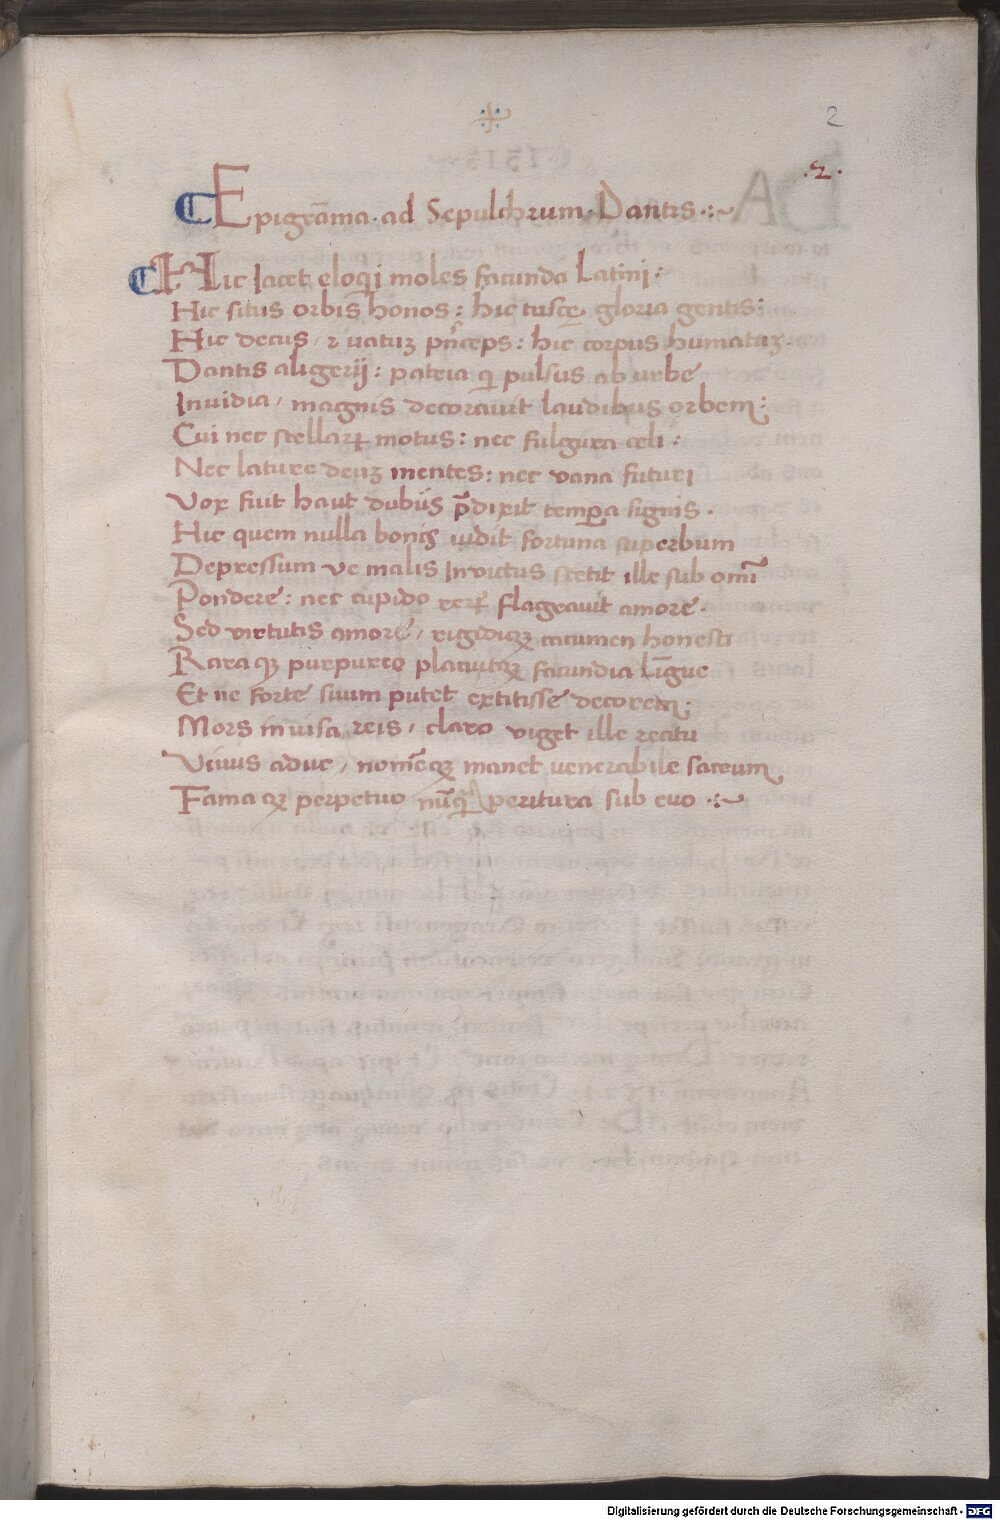 2
.2.
Epigrāma. ad Sepulchrum Dantis
Hic Iacet eloqij moles facunda Latinj:
Hic situs orbis honos: hic tuscę gloria gentis:
Hic decus, 2 uatuꝫ pn̄ceps: hic corpus humatuꝫ.
Dantis aligerij: patria qi pulsus ab urbe
Inuidia, magnis decorauit laudibus orbem:
Cui nec stellaꝝ motus: nec fulgura celi:
Nec latuere deuꝫ mentes: nec vana futuri
Vox fuit haut dubijs p̄dixit tempora signis.
Hic quem nulla bonis uidit fortuna superbum
Depressum ve malis Inuictus stetit ille sub omī
Pondere: nec cupido reꝝ flagrauit amore.
Sed virtutis amore, rigidiqꝫ cacumen honesti
Rara qꝫ purpureo placuitqꝫ facundia Lingue
Et ne forte suum putet extitisse decorem:
Mors inuisa reis, claro viget ille reatu
Viuus aduc, nomēqꝫ manet uenerabile sacrum
Fama qꝫ perpetuo peritura sub euo
Digitalisierung gefördert durch die Deutsche Forschungsgemeinschaft - DFG